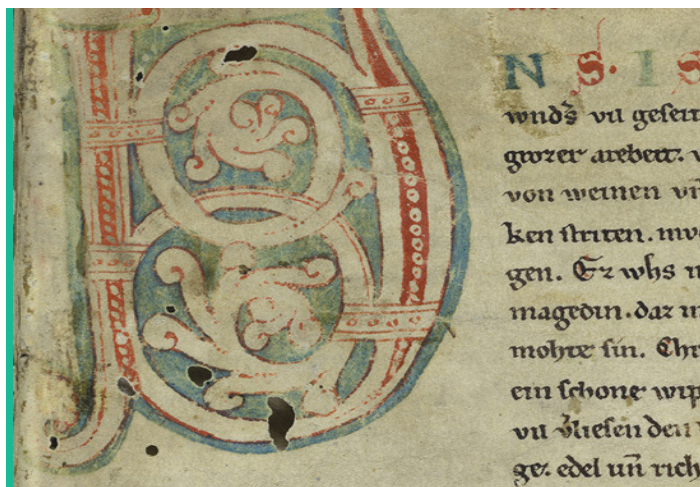 N S. I S
wnds̉ vil geseit
grozer arebeit. v
von weinen vn
ken striten. mv
gen. Ez whs
magedin. daz in
mohte sin. Chr
ein schone wip
vn̄ v̉liesen den
ge. edel vn̄ rich